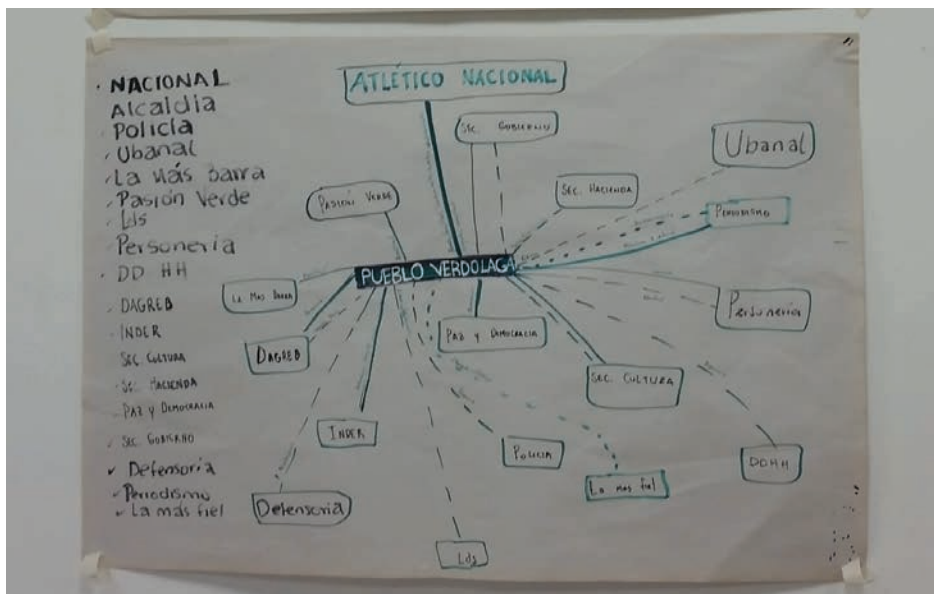 NACIONAL
Alcaldia
Policía
Ubanal
La Más barra
Pasión Verde
Lds
Personeria
DD HH
DAGREB
INDER
SEC. CULTURA
SEC. HACIENDA
PAZ Y DEMOCRACIA
SEC. GOBIERNO
Defensoria
Periodismo
La más fiel
ATLÉTICO NACIONAL
SEC. GOBIERNO
Ubanal
SEC. HACIENDA
PASIÓN VERDE
PERIODISMO
PUEBLO VERDOLAGA
LA MAS BARRA
Personeria
PAZ Y DEMOCRACIA
DAGREB
SEC. CULTURA
INDER
POLICIA
DDHH
La mas fiel
Defensoria
Lds